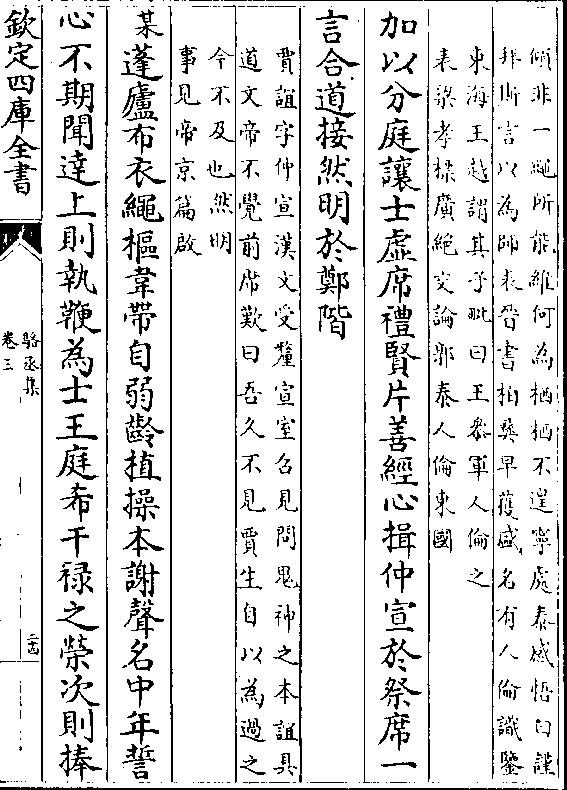 傾非一繩所能維何為栖栖不遑寧處泰感悟曰謹
拜斯言以為師表晉書桓彛早獲盛名有人倫識鑒
東海王越謂其子毗曰王參軍人倫之
表梁孝標廣絶交論郭泰人倫東國
加以分庭讓士虛席禮賢片善經心揖仲宣於祭席一
言合道接然明於鄭階
賈誼字仲宣漢文受釐宣室召見問鬼神之本誼具
道文帝不覺前席歎曰吾久不見賈生自以為過之
今不及也然明
事見帝京篇啟
某蓬廬布衣繩樞韋帶自弱齡植操本謝聲名中年誓
心不期聞達上則執鞭為士王庭希干禄之榮次則捧
欽定四庫全書
駱丞集
卷三
二十四